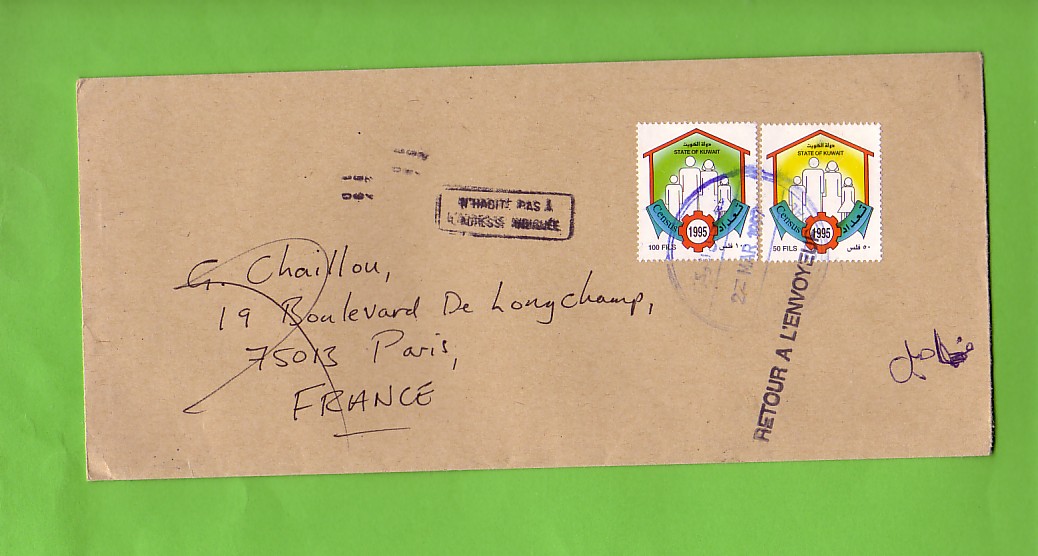 N'HABITE PAS A
L'ADRESSE INDIQUÉE
دولة الكويت
STATE OF KUWAIT
Census
1995
تعداد
100 FILS
١٠٠ فلس
دولة الكويت
STATE OF KUWAIT
Census
1995
تعداد
50 FILS
٥٠ فلس
MAR
RETOUR A L'ENVOYEUR
G. Chaillou,
19 Boulevard De Longchamp,
75013 Paris,
FRANCE